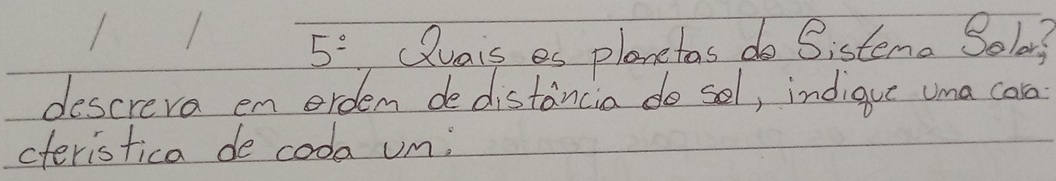 5º Quais os planetas do Sistema Solar?
descreva em ordem de distância do sol, indique uma cara-
cterística de cada um: